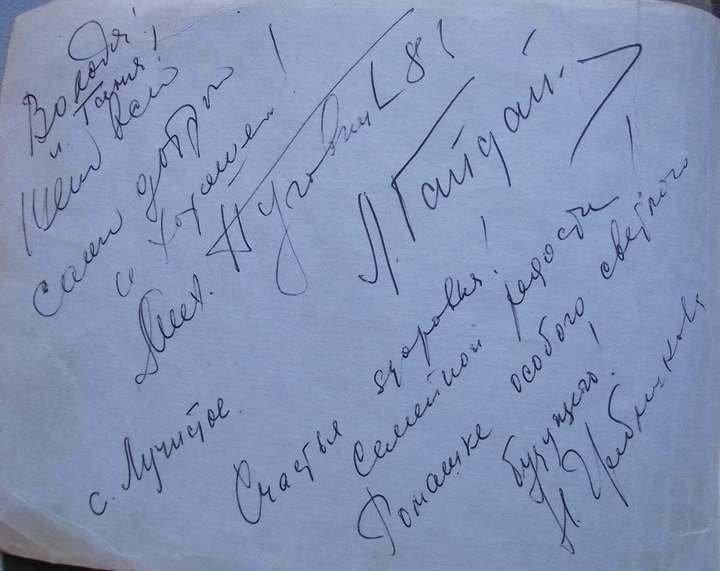 Володя!
и Таня!
Шлю вам
самы добры
и хороше !
Мих. Пуговкин 81
Л. Гайдай.
с. Лучистое.
Счастья здоровья!
Семейной радости
Ромашке особого светлого !
будущего!
Н. Гребешкова